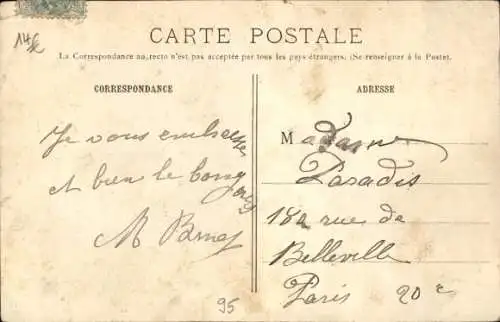 14€
CARTE POSTALE
La Correspondance au recto n'est pas acceptée par tous les pays étrangers. (Se renseigner à la Poste).
CORRESPONDANCE
Je vous embrasse
et bien le bonjour
M
95
ADRESSE
Madame
Paradis
180 rue de
Belleville
Paris 20e